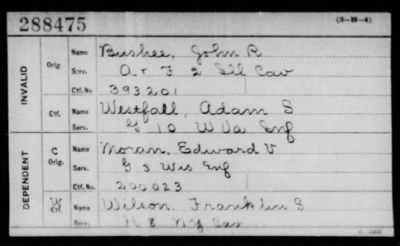 288475 (5-38-4)
INVALID
Orig. Name Bushee, John R
Serv. A & F 2 Ill Cav
Ctf. No. 393201
Ctf. Name Westfall, Adam S
Serv. G 10 W Va Inf
DEPENDENT
C Orig. Name Moran, Edward V
Serv. G 3 Wis Inf
Ctf. No. 200023
W Ctf. Name Wilson, Franklin S
Serv. H 8 N.Y. Cav